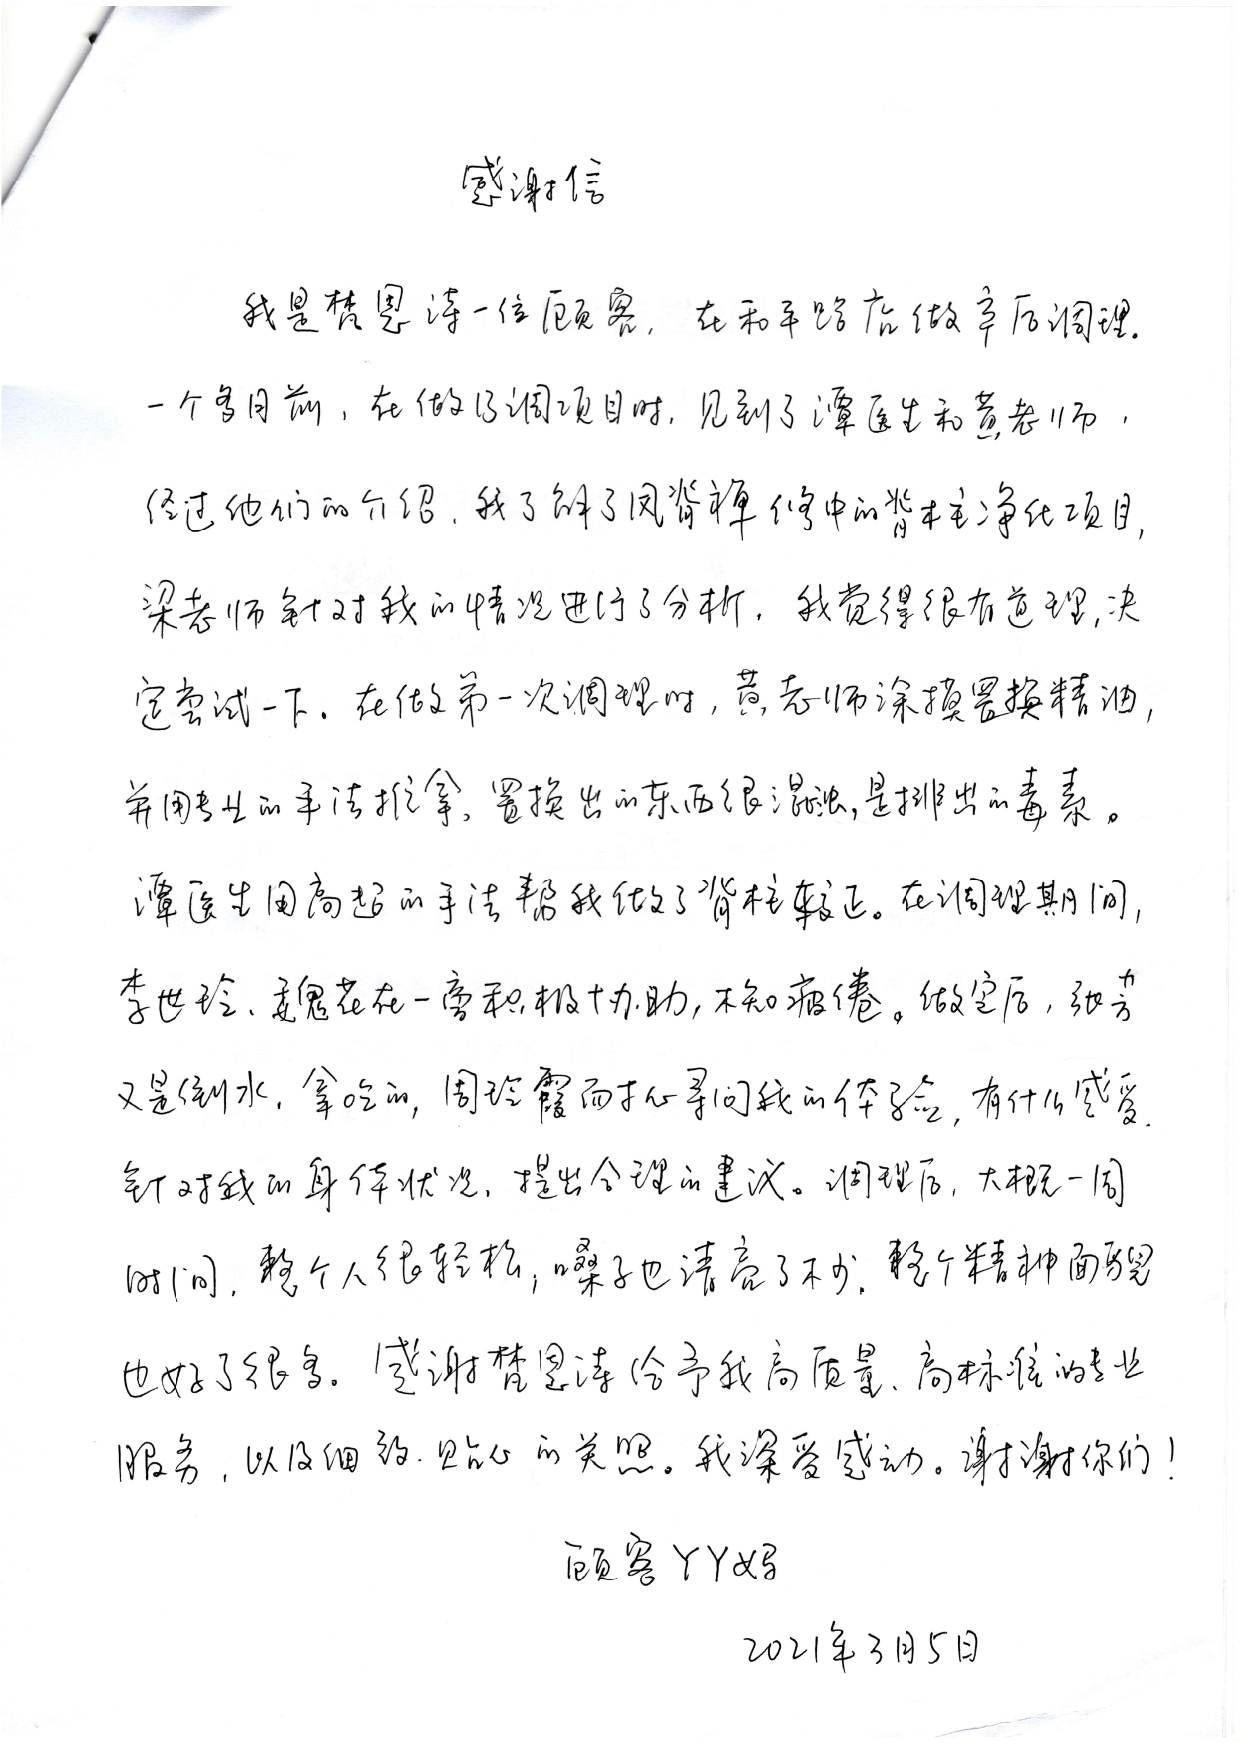 感谢信
我是梵恩涛一位顾客，在和平路店做产后调理.
一个多月前，在做后调项目时，见到了潭医生和黄老师，
经过他们的介绍，我了解了凤背禅修中的背柱净化项目，
梁老师针对我的情况进行了分析，我觉得很有道理，决
定尝试一下。在做第一次调理时，黄老师涂摸置换精油，
并用专业的手法推拿，置换出的东西很混浊，是排出的毒素。
潭医生用高超的手法帮我做了背柱较正。在调理期间，
李世玲、魏花在一旁积极协助，不知疲倦。做完后，张芳
又是倒水，拿吃的，周玲霞而担心寻问我的体验，有什么感受.
针对我的身体状况，提出合理的建议。调理后，大概一周
时间，整个人很轻松，嗓子也清亮了不少，整个精神面貌
也好了很多。感谢梵恩涛给予我高质量、高标准的专业
服务，以及细致.贴心的关照。我深受感动。谢谢你们！
顾客丫丫妈
2021年3月5日